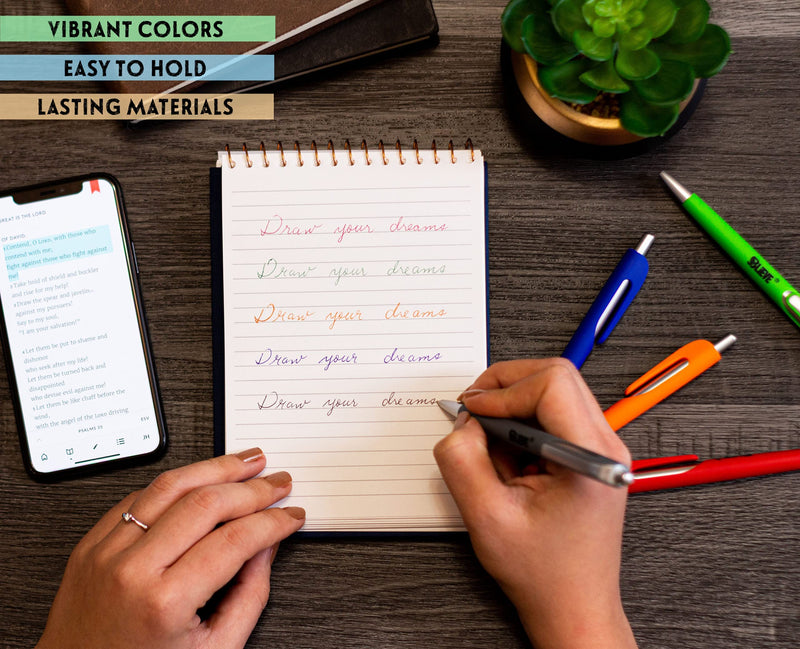 VIBRANT COLORS
EASY TO HOLD
LASTING MATERIALS
GREAT IS THE LORD
OF DAVID.
Contend, O LORD, with those who
contend with me;
fight against those who fight against
me!
2 Take hold of shield and buckler
and rise for my help!
3 Draw the spear and javelin
against my pursuers!
Say to my soul,
"I am your salvation!"
4 Let them be put to shame and
dishonor
who seek after my life!
Let them be turned back and
disappointed
who devise evil against me!
5 Let them be like chaff before the
wind,
with the angel of the LORD driving
PSALMS 35
ESV
JH
Draw your dreams
Draw your dreams
Draw your dreams
Draw your dreams
Draw your dreams